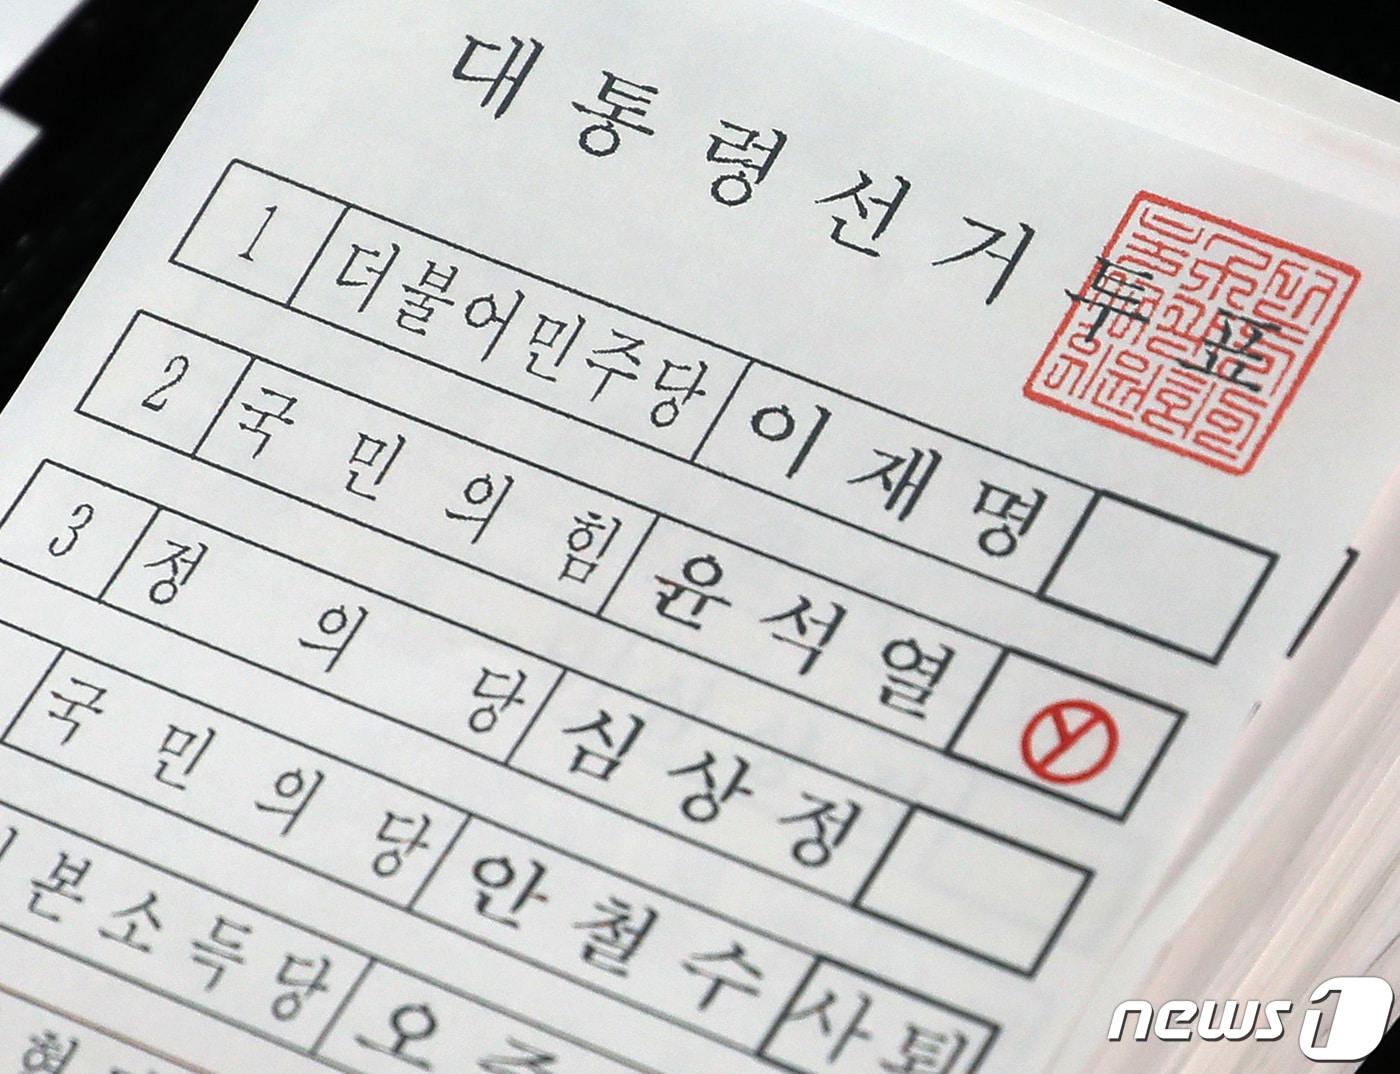 대통령선거투표
1 더불어민주당 이재명
2 국민의힘 윤석열
3 정의당 심상정
국민의당 안철수 사퇴
본소득당 오
news1